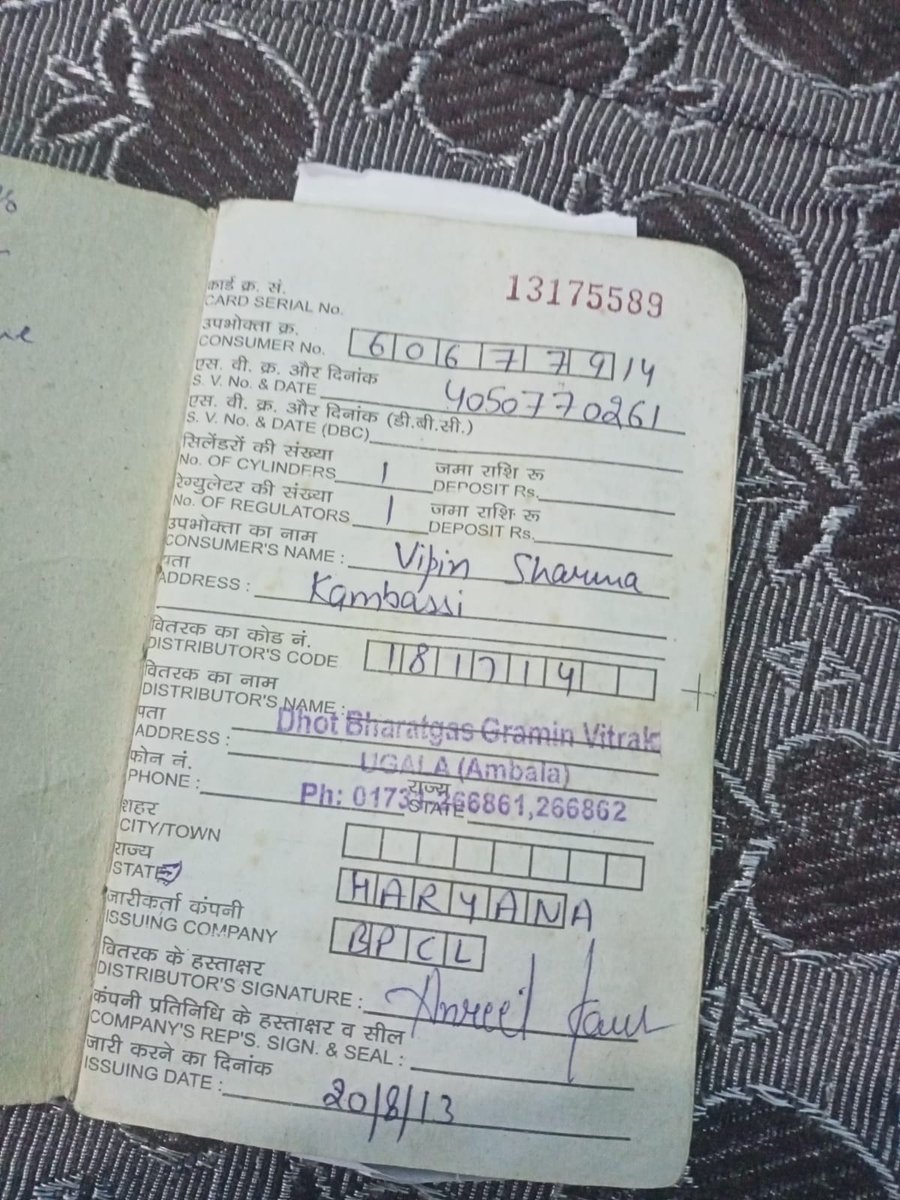 कार्ड क्र. सं.
CARD SERIAL No. 13175589
उपभोक्ता क्र.
CONSUMER No. 606779/14
एस. वी. क्र. और दिनांक
S. V. No. & DATE 4050770261
एस. वी. क्र. और दिनांक (डी.बी.सी.)
S. V. No. & DATE (DBC)
सिलेंडरों की संख्या जमा राशि रू
No. OF CYLINDERS 1 DEPOSIT Rs.
रेग्युलेटर की संख्या जमा राशि रू
No. OF REGULATORS 1 DEPOSIT Rs.
उपभोक्ता का नाम
CONSUMER'S NAME : Vipin Sharma
पता
ADDRESS : Kambassi
वितरक का कोड नं.
DISTRIBUTOR'S CODE 181714
वितरक का नाम
DISTRIBUTOR'S NAME :
Dhot Bharatgas Gramin Vitrak
पता
ADDRESS :
UGALA (Ambala)
फोन नं. राज्य
PHONE : STATE
Ph: 01731-266861,266862
शहर
CITY/TOWN
राज्य
STATE HARYANA
जारीकर्ता कंपनी
ISSUING COMPANY BPCL
वितरक के हस्ताक्षर
DISTRIBUTOR'S SIGNATURE :
कंपनी प्रतिनिधि के हस्ताक्षर व सील
COMPANY'S REP'S. SIGN. & SEAL :
जारी करने का दिनांक
ISSUING DATE : 20/8/13